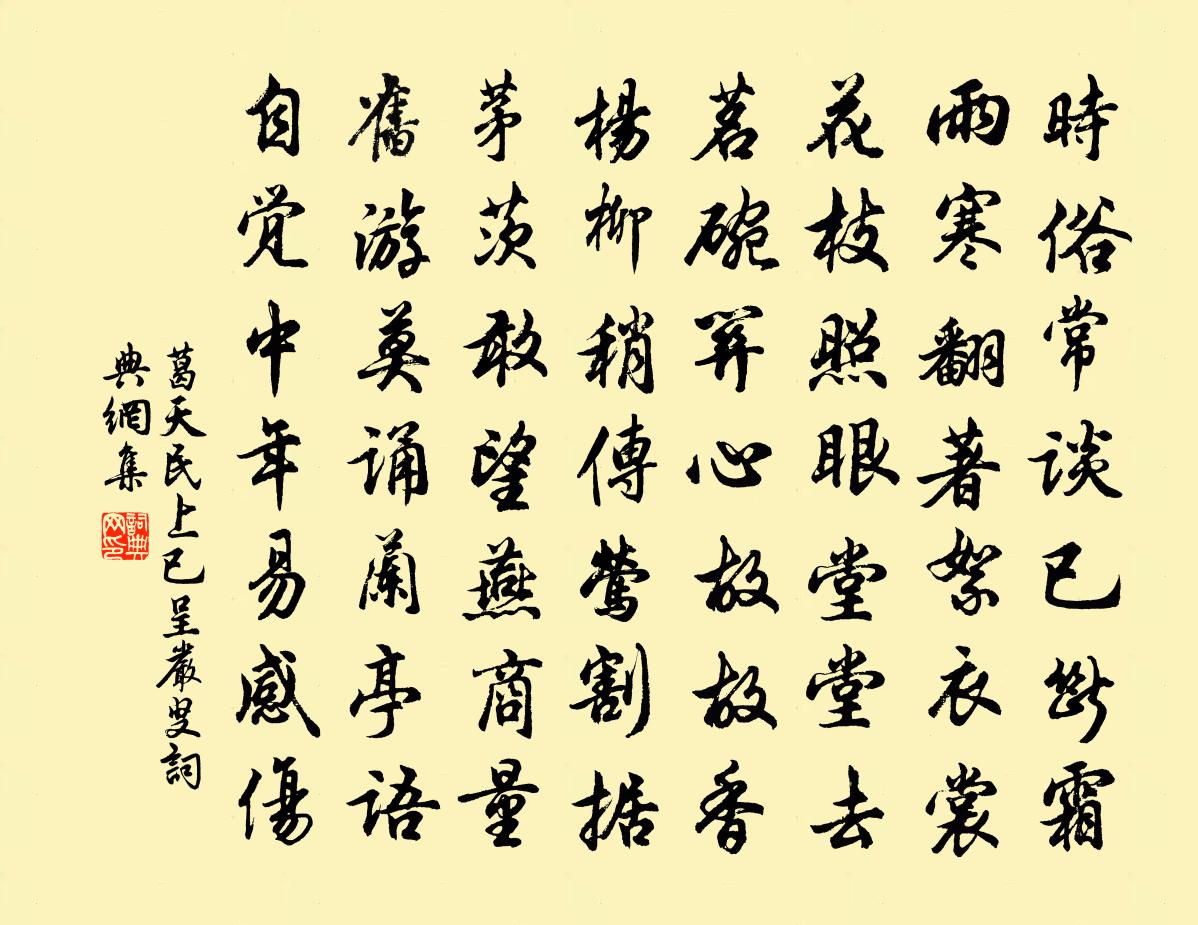 時俗常谈已斷霜
雨寒翻著絮衣裳
花枝照眼堂堂去
茗碗関心故故香
楊柳稍傳莺割据
茅茨敢望燕商量
舊游莫诵蘭亭语
自觉中年易感傷
葛天民上巳呈嚴叟詞
典網集
詞典